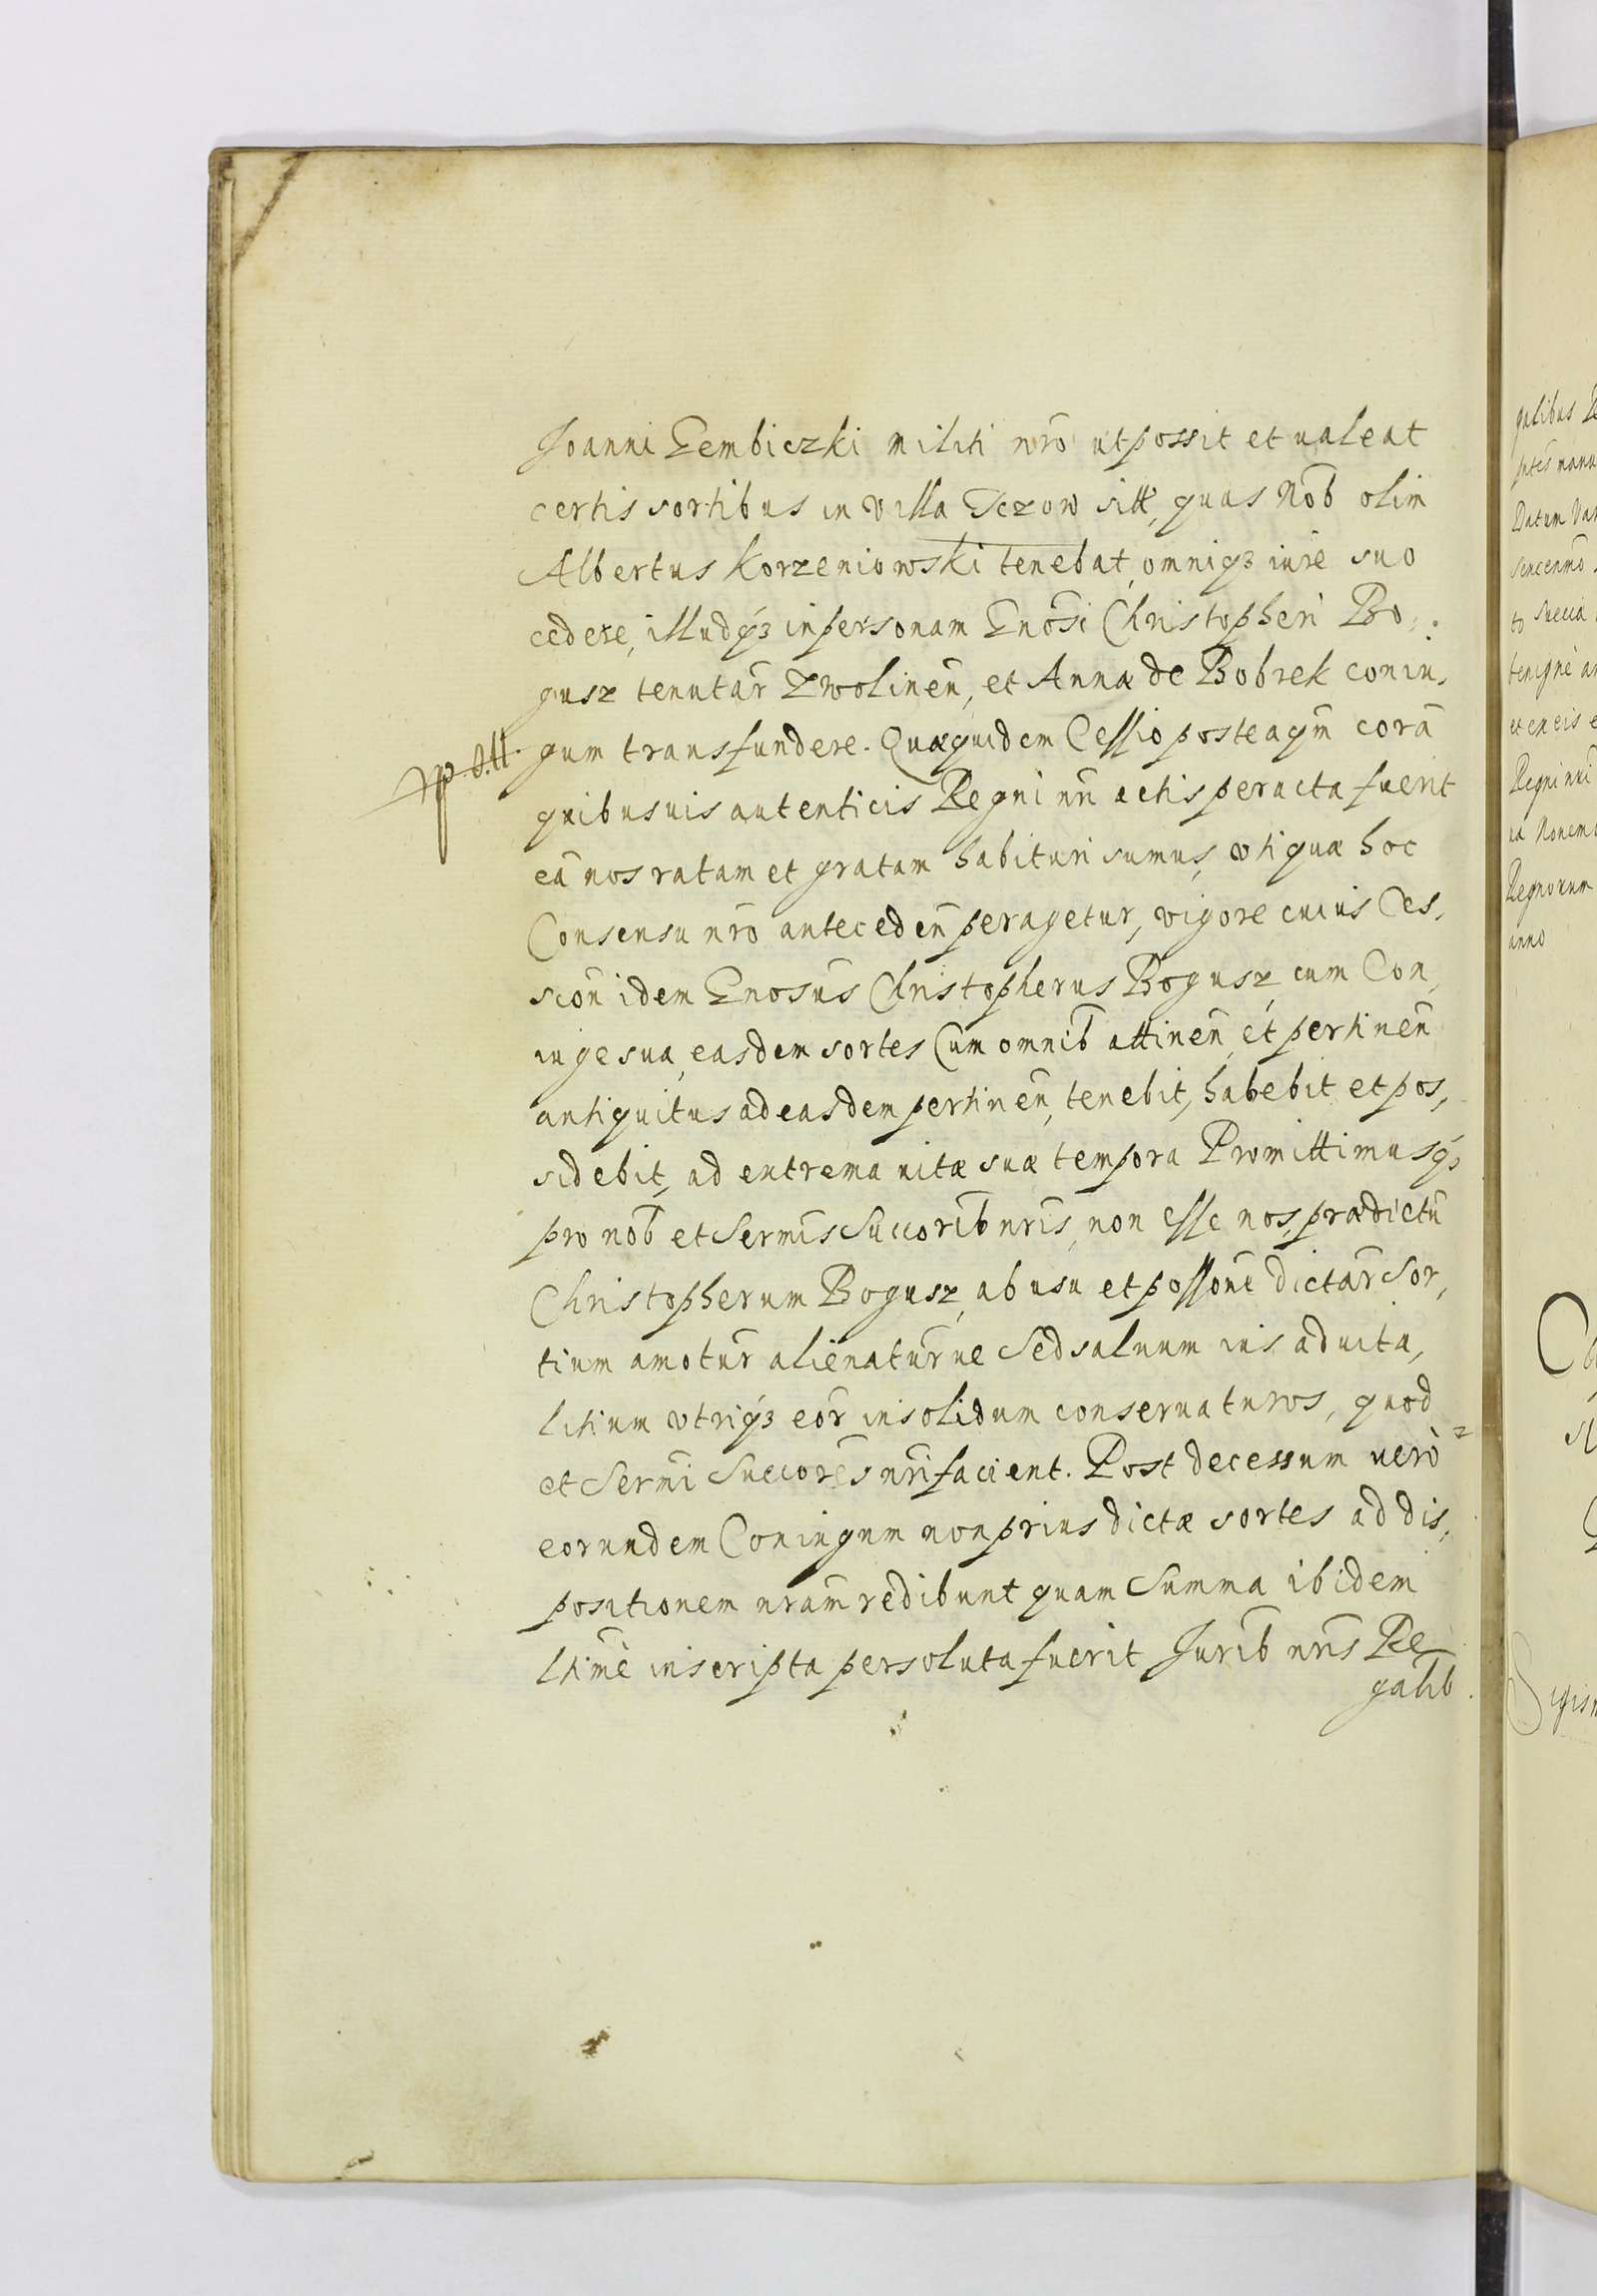 Joanni Gembiczki militi nrõ ut possit et ualeat
certis sortibus in villa Tczow sitt, quas Nob olim
Albertus Korzeniowski tenebat, omniqz iure suo
cedere, illudqz in personam Gnosi Christopheri Bo,
gusz tenutar Zwolinen, et Annæ de Bobrek coniu,
gum transfundere. Quæquidem Cessio posteaqm corã
quibusuis autenticis Regni nri actis peracta fuerit
eã nos ratam et gratam habituri sumus, vti quæ hoc
Consensu nrõ anteceden peragetur, vigore cuius Ces,
sion idem Gnosus Christopherus Bogusz cum Con,
iuge sua, easdem sortes Cum omnib attinen, et pertinen
antiquitus ad easdem pertinen, tenebit, habebit et pos,
sidebit, ad extrema uitæ suæ tempora Promittimusqz
pro nob et Sermis Succorib nris, non esse nos, prædictũ
Christopherum Bogusz, ab usu et possone dictar Sor,
tium amotur alienatur ue Sed saluum ius aduita,
litium vtriqz eor in solidum conseruaturos, quod
et Sermi Succores nri facient. Post decessum uerò
eorundem Coniugum non prius dictæ sortes ad dis,
positionem nram redibunt quam Summa ibidem
ltime inscripta persoluta fuerit Jurib nris Re
galib
galibus
manu
Datum Var
to Sueciæ
benignè
et ex eis
Regni nri
Regnorum
anno
Sigism